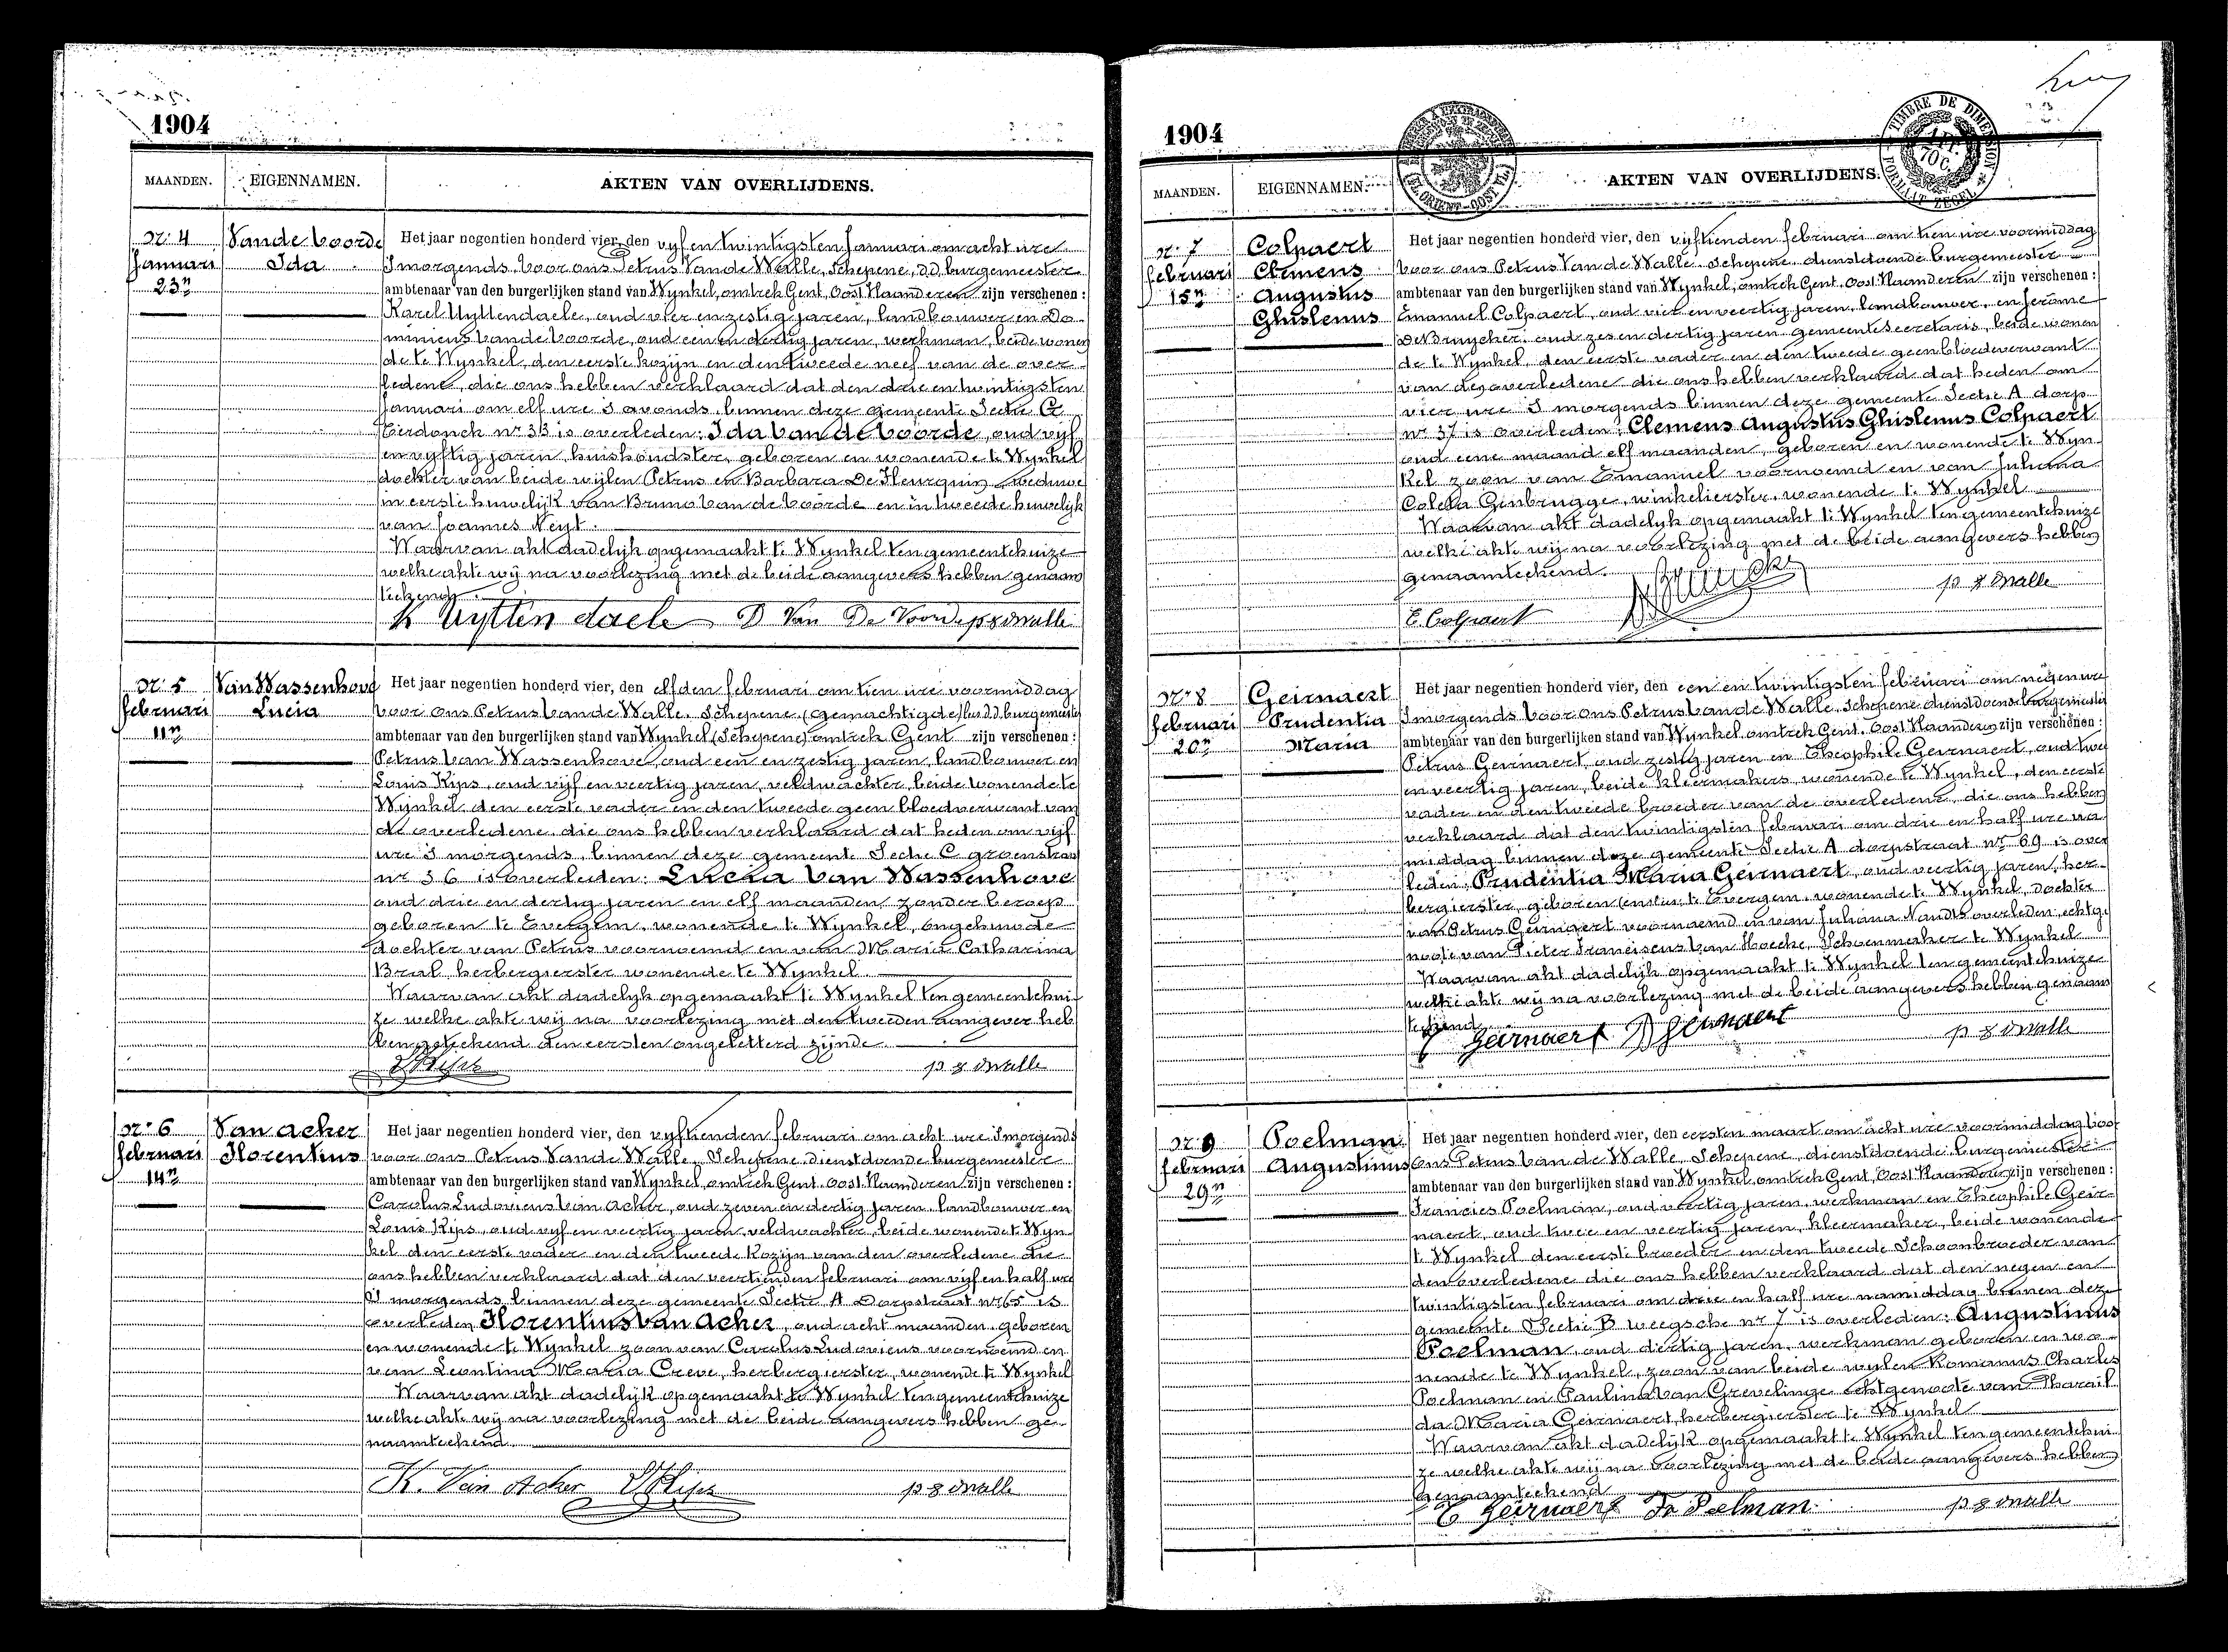 1904
MAANDEN. EIGENNAMEN. AKTEN VAN OVERLIJDENS.
nr 4
Januari
23n
Van de Voorde
Ida
Het jaar negentien honderd vier, den vyf en twintigsten Januari om acht ure
s morgends voor ons Petrus Van de Walle, Schepene, d.d. burgemeester
ambtenaar van den burgerlijken stand van Wynkel, omtrek Gent, Oost Vlaanderen zijn verschenen:
Karel Uyttendaele, oud vier en zestig jaren, landbouwer en Do-
miniens Van de Voorde, oud een en dertig jaren, werkman, beide wonen
de te Wynkel, den eerste kozijn en den tweede neef van de over-
ledene, die ons hebben verklaard dat den drie en twintigsten
Januari om elf ure s avonds binnen deze gemeente Sectie G
Eerdonck nr 33 is overleden: Ida Van de Voorde, oud vijf
en vyftig jaren, huishoudster, geboren en wonende te Wynkel
dochter van beide wijlen Petrus en Barbara De Fleurquin, weduwe
in eerste huwelijk van Bruno Van de Voorde en in tweede huwelijk
van Joannes Neyt.
Waarvan akt dadelijk opgemaakt te Wynkel ten gemeentehuize
welke akte wij na voorlezing met de beide aangevers hebben genaam
teekend.
K Uyttendaele D Van De Voorde p v d walle
nr 5
februari
11n
Van Wassenhove
Lucia
Het jaar negentien honderd vier, den elfden februari om tien ure voormiddag
voor ons Petrus Van de Walle, Schepene, (gemachtigde) d.d. burgemeester
ambtenaar van den burgerlijken stand van Wynkel (Schepene) omtrek Gent zijn verschenen:
Petrus Van Wassenhove, oud een en zestig jaren, landbouwer en
Louis Kips, oud vijf en veertig jaren, veldwachter, beide wonende te
Wynkel, den eerste vader en den tweede geen bloedverwant van
de overledene, die ons hebben verklaard dat heden om vijf
ure s morgends, binnen deze gemeente Sectie C groenstraat
nr 36 is overleden: Lucia Van Wassenhove
oud drie en dertig jaren en elf maanden, zonder beroep
geboren te Evergem, wonende te Wynkel, ongehuwde
dochter van Petrus voornoemd en van Maria Catharina
Bral herbergierster wonende te Wynkel
Waarvan akt dadelyk opgemaakt te Wynkel ten gemeentehui-
ze welke akte wij na voorlezing met den tweeden aangever heb
ben geteekend den eersten ongeletterd zijnde
L Kips p v d walle
nr 6
februari
14n
Van Acker
Florentius
Het jaar negentien honderd vier, den vyftienden februari om acht ure s morgends
voor ons Petrus Van de Walle, Schepene, dienstdoende burgemeester
ambtenaar van den burgerlijken stand van Wynkel, omtrek Gent, Oost Vlaanderen zijn verschenen:
Carolus Ludovicus Van Acker, oud zeven en dertig jaren, landbouwer en
Louis Kips, oud vyf en veertig jaren, veldwachter, beide wonende te Wyn-
kel den eerste vader en den tweede kozijn van den overledene die
ons hebben verklaard dat den veertienden februari om vijf en half ure
s morgends binnen deze gemeente Sectie A Dorpstraat nr 65 is
overleden Florentius Van Acker, oud acht maanden, geboren
en wonende te Wynkel zoon van Carolus Ludovicus voornoemd en
van Leontina Maria Creve, herbergierster, wonende te Wynkel
Waarvan akt dadelijk opgemaakt te Wynkel ten gemeentehuize
welke akte wij na voorlezing met de beide aangevers hebben ge-
naamteekend.
K. Van Acker L Kips p v d walle
1904
TIMBRE DE DIMENSION
70 C.
FORMAAT ZEGEL
MAANDEN. EIGENNAMEN. AKTEN VAN OVERLIJDENS.
nr 7
februari
15n
Colpaert
Clemens
Augustus
Ghislenus
Het jaar negentien honderd vier, den vijftienden februari om tien ure voormiddag
voor ons Petrus Van de Walle, Schepene, dienstdoende burgemeester
ambtenaar van den burgerlijken stand van Wynkel, omtrek Gent, Oost Vlaanderen zijn verschenen:
Emanuel Colpaert, oud vier en veertig jaren, landbouwer, en Jerôme
De Bruycker, oud zes en dertig jaren gemeentesecretaris, beide wonen
de te Wynkel, den eerste vader en den tweede geen bloedverwant
van den overledene die ons hebben verklaard dat heden om
vier ure s morgends binnen deze gemeente Sectie A dorp
nr 37 is overleden: Clemens Augustus Ghislenus Colpaert
oud eene maand elf maanden, geboren en wonende te Wyn-
kel zoon van Emanuel voornoemd en van Juliana
Coleta Ginbrugge, winkelierster, wonende te Wynkel
Waarvan akt dadelyk opgemaakt te Wynkel ten gemeentehuize
welke akte wij na voorlezing met de beide aangevers hebben
genaamteekend.
E. Colpaert p v d walle
nr 8
februari
20n
Geirnaert
Prudentia
Maria
Het jaar negentien honderd vier, den een en twintigsten februari om negen ure
s morgends voor ons Petrus Van de Walle, Schepene dienstdoende burgemeester
ambtenaar van den burgerlijken stand van Wynkel omtrek Gent, Oost Vlaanderen zijn verschenen:
Petrus Geirnaert, oud zestig jaren en Theophile Geirnaert, oud twee
en veertig jaren, beide kleermakers, wonende te Wynkel, den eerste
vader en den tweede broeder van de overledene, die ons hebben
verklaard dat den twintigsten februari om drie en half ure na
middag binnen deze gemeente Sectie A dorpstraat nr 69 is over
leden: Prudentia Maria Geirnaert, oud veertig jaren, her-
bergierster, geboren te Evergem, wonende te Wynkel, dochter
van Petrus Geirnaert voornoemd en van Juliana Nandts overleden, echtge
noote van Pieter Franciscus Van Hoecke, Schoenmaker te Wynkel
Waarvan akt dadelijk opgemaakt te Wynkel ten gemeentehuize
welke akte wij na voorlezing met de beide aangevers hebben genaam
teekend.
T Geirnaert P Geirnaert p v d walle
nr 9
februari
29n
Poelman
Augustinus
Het jaar negentien honderd vier, den eersten maart om acht ure voormiddag voor
ons Petrus Van de Walle, Schepene, dienstdoende burgemeester
ambtenaar van den burgerlijken stand van Wynkel, omtrek Gent, Oost Vlaanderen zijn verschenen:
Francies Poelman, oud veertig jaren, werkman en Theophile Geir-
naert, oud twee en veertig jaren, kleermaker, beide wonende
te Wynkel den eerste broeder en den tweede Schoonbroeder van
den overledene die ons hebben verklaard dat den negen en
twintigsten februari om drie en half ure namiddag binnen deze
gemeente Sectie B weegsche nr 7 is overleden: Augustinus
Poelman, oud dertig jaren, werkman geboren en wo-
nende te Wynkel, zoon van beide wylen Romanus Charles
Poelman en Paulina Van Grevelinge echtgenoote van Pharail
da Maria Geirnaert, herbergierster te Wynkel
Waarvan akt dadelijk opgemaakt te Wynkel ten gemeentehui-
ze welke akte wij na voorlezing met de beide aangevers hebben
genaamteekend
T Geirnaert Fr Poelman p v d walle